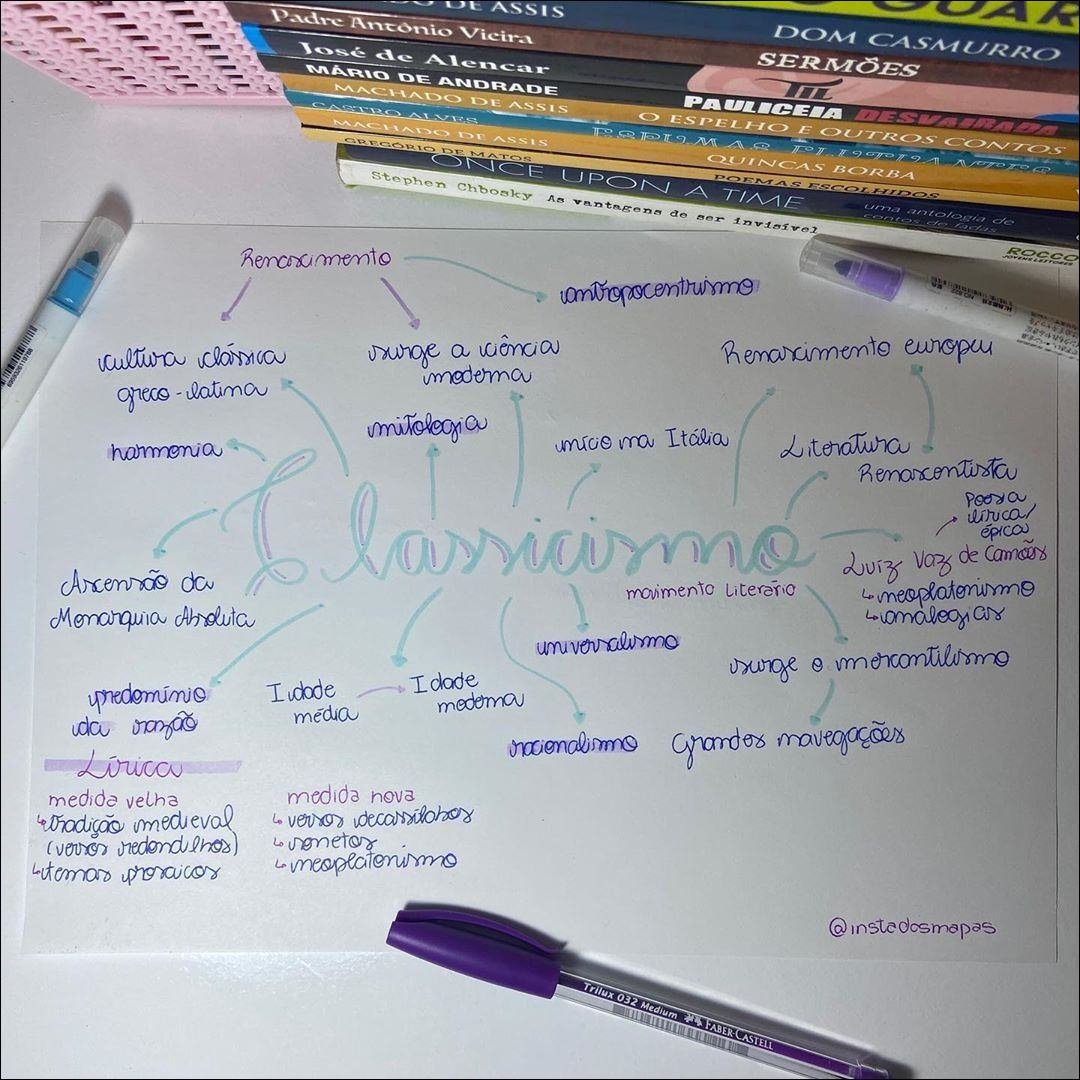 DO DE ASSIS
Padre Antônio Vieira
DOM CASMURRO
José de Alencar
SERMÕES
MÁRIO DE ANDRADE
PAULICEIA DESVAIRADA
MACHADO DE ASSIS
O ESPELHO E OUTROS CONTOS
CASTRO ALVES
MACHADO DE ASSIS
QUINCAS BORBA
GREGÓRIO DE MATOS
POEMAS ESCOLHIDOS
ONCE UPON A TIME
uma antologia de
contos de fadas
Stephen Chbosky As vantagens de ser invisível
ROCCO
JOVENS LEITORES
Renascimento
antropocentrismo
cultura clássica
greco-latina
surge a ciência
moderna
Renascimento europeu
harmonia
mitologia
início na Itália
Literatura
Renascentista
Poesia
lírica/
épica
Classicismo
Ascensão da
Monarquia Absoluta
movimento literário
Luiz Vaz de Camões
↳neoplatonismo
↳analogias
universalismo
surge o mercantilismo
predomínio
da razão
Idade
média
Idade
moderna
racionalismo
Grandes navegações
Lírica
medida velha
↳tradição medieval
(versos redondilhos)
↳temas prosaicos
medida nova
↳versos decassílabos
↳sonetos
↳neoplatonismo
@instadosmapas
Trilux 032 Medium FABER-CASTELL